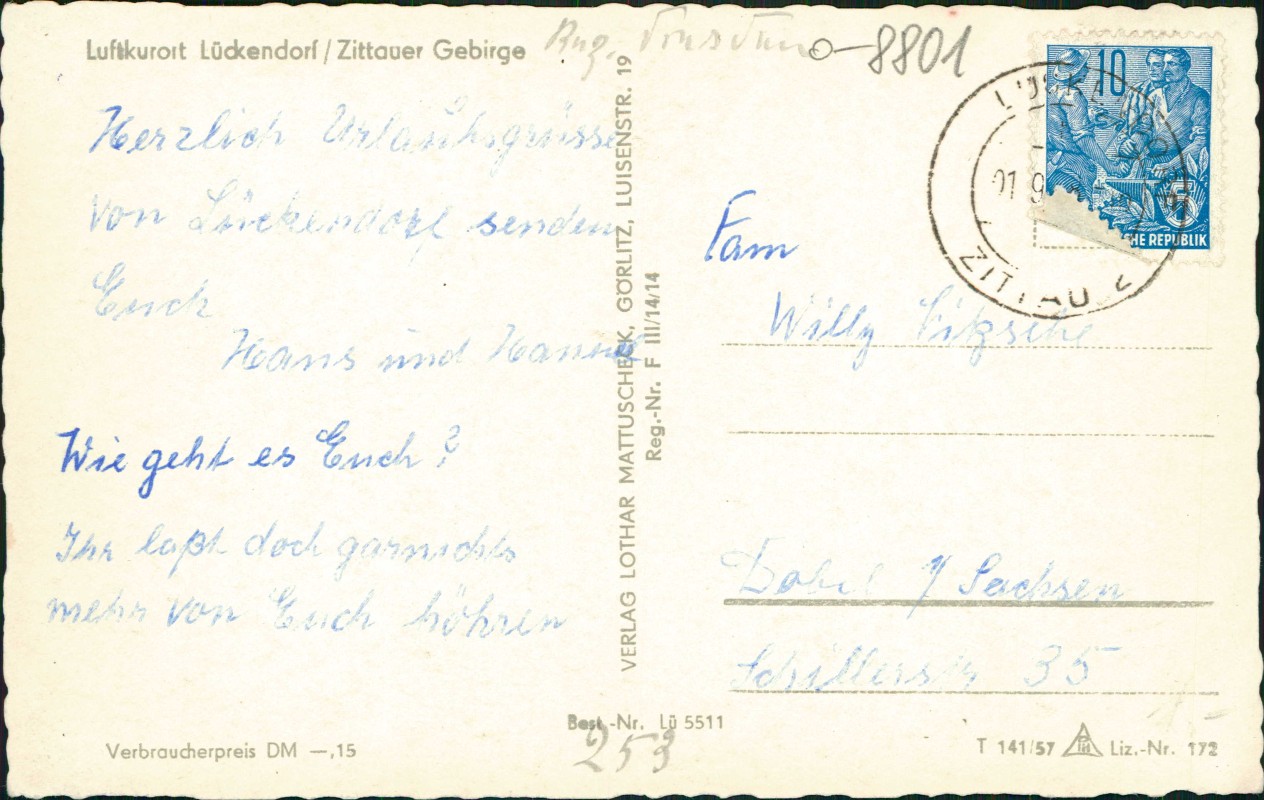 Luftkurort Lückendorf / Zittauer Gebirge
o-8801
Herzlich Urlaubsgrüsse
von Lückendorf senden
Euch
Hans und Hanne
Wie geht es Euch?
Ihr laßt doch garnichts
mehr von Euch höhren
VERLAG LOTHAR MATTUSCHECK, GÖRLITZ, LUISENSTR. 19
Reg.-Nr. F III/14/14
10
HE REPUBLIK
Fam
Willy
/ Sachsen
Schillerstr 35
Best.-Nr. Lü 5511
253
Verbraucherpreis DM —,15
T 141/57 Liz.-Nr. 172